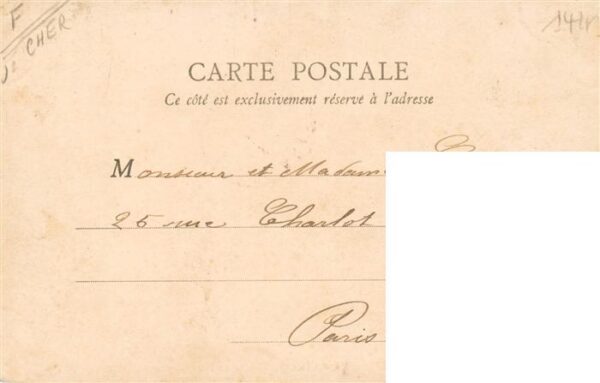 F
CHER
CARTE POSTALE
Ce côté est exclusivement réservé à l'adresse
Monsieur et Madam
25 rue Charlot
Paris